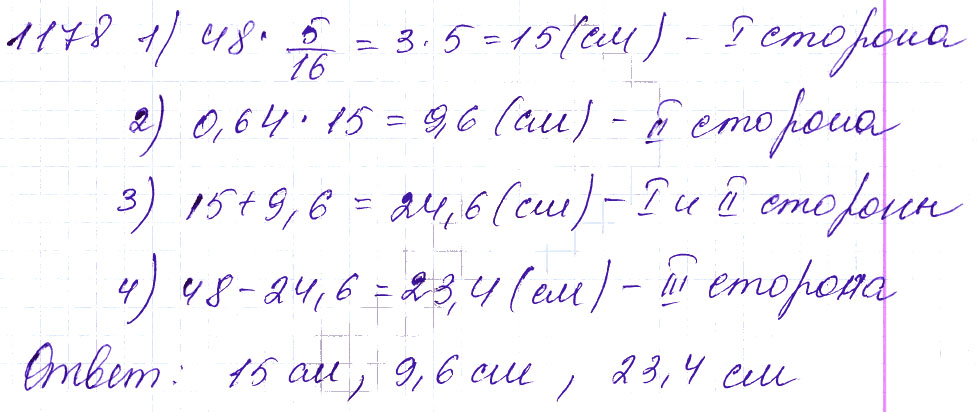 1178 1) 48 · 5/16 = 3 · 5 = 15 (см) – I сторона
2) 0,64 · 15 = 9,6 (см) – II сторона
3) 15 + 9,6 = 24,6 (см) – I и II стороны
4) 48 – 24,6 = 23,4 (см) – III сторона
Ответ: 15 см, 9,6 см, 23,4 см